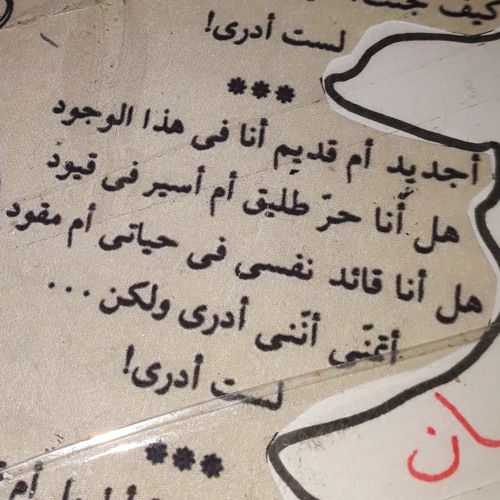 كيف
لست أدرى!
***
أجديد أم قديم أنا فى هذا الوجود
هل أنا حرّ طليق أم أسير فى قيود
هل أنا قائد نفسى فى حياتى أم مقود
أتمنّى أنّنى أدرى ولكن ...
لست أدرى!
***